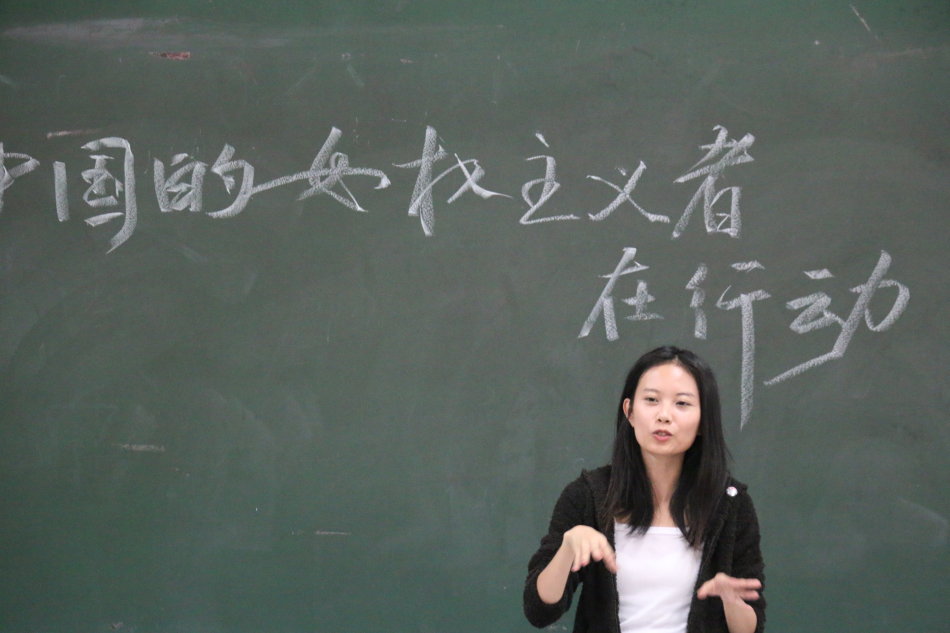 中国的女权主义者
在行动